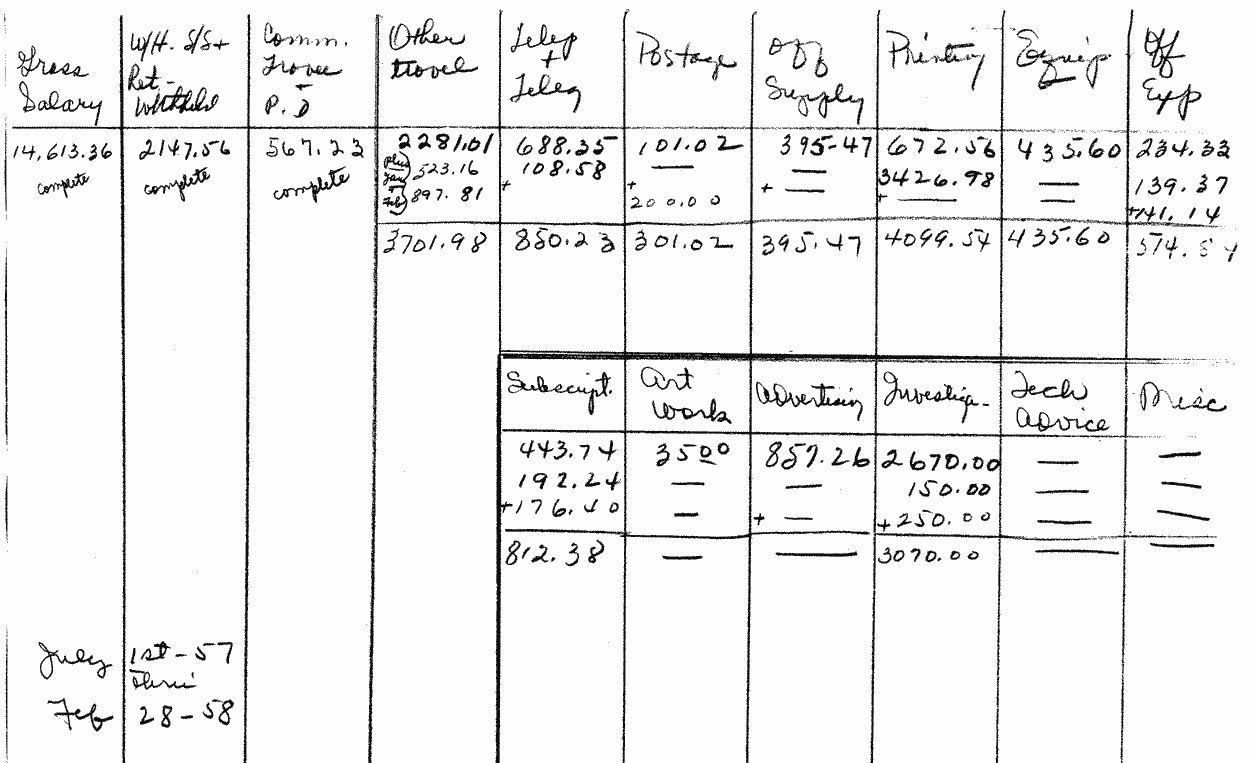 Gross Salary | W/H. S/S + Ret - Withheld | Comm. Travel - P. D | Other travel | Telep + Teleg | Postage | Off Supply | Printing | Equip | Off Exp
14,613.36 | 2147.56 | 567.23 | 2281.01 | 688.35 | 101.02 | 395-47 | 672.56 | 435.60 | 234.33
complete | complete | complete | plus Jan 523.16 | 108.58 | — | — | 3426.98 | — | 139.37
+ Feb 897.81 | + | + 200.00 | + — | + — | — | +141.14
3701.98 | 850.23 | 301.02 | 395.47 | 4099.54 | 435.60 | 514.84
Subscript. | Art Work | Advertising | Investiga- | Tech Advice | Misc
443.74 | 3500 | 857.26 | 2670.00 | — | —
192.24 | — | — | 150.00 | — | —
+176.40 | — | + — | +250.00 | — | —
812.38 | — | — | 3070.00 | — | —
July 1st - 57
thru
Feb 28 - 58